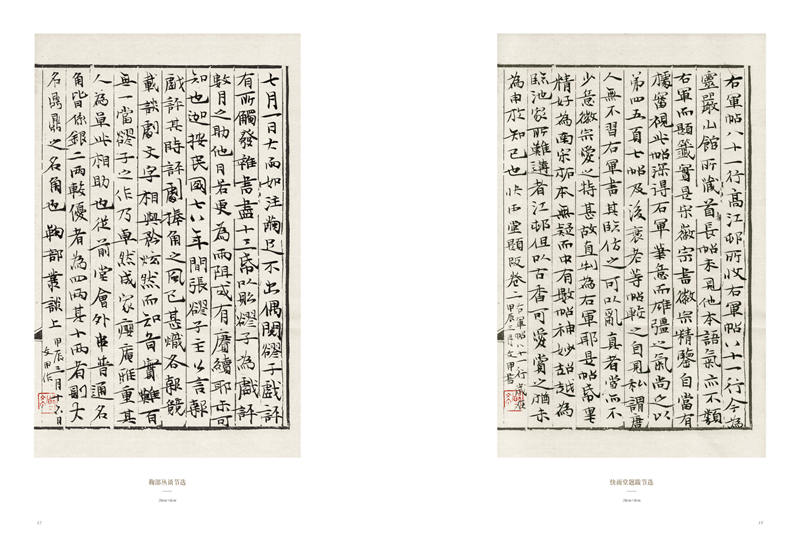 七月一日大雨如注繭足不出偶閱謬子戲評
有所觸發雜書盡十二番以貽謬子為戲評
數月之助他日若更為雨阻或有賡續耶未可
知也迦按民國七八年間張謬子主公言報
戲評其時評劇捧角之風已甚熾各報競
載談劇文字相與矜炫然而知音實難百
無一當謬子之作乃卓然成家癭庵雅重其
人為量此相助也從前堂會外串普通名
角皆係銀二兩較優者為四兩其十兩者則大
名鼎鼎之名角也 鞠部叢談上 甲辰三月十六日
文甲作
鞠部丛谈节选
28cm×18cm
17
右軍帖八十一行高江邨所收右軍帖八十一行今為
靈巖山館所藏首長帖未見他本語氣亦不類
右軍而題籤實是宋徽宗書徽宗精鑒自當有
據審視此帖深得右軍筆意而雄彊之氣尚之以
第四五頁七帖及後衰老等帖較之自見私謂唐
人無不習右軍書其臨仿之可以亂真者當而不
少意徽宗愛之特甚故直判為右軍耶是帖紙墨
精好為南宋拓本無疑而中有數帖神妙超越為
臨池家所難講者江邨但以古香可愛賞之猶未
為由於知己也 快雨堂題跋卷二 右軍帖八十一行
甲辰三月文甲書
快雨堂题跋节选
28cm×18cm
18